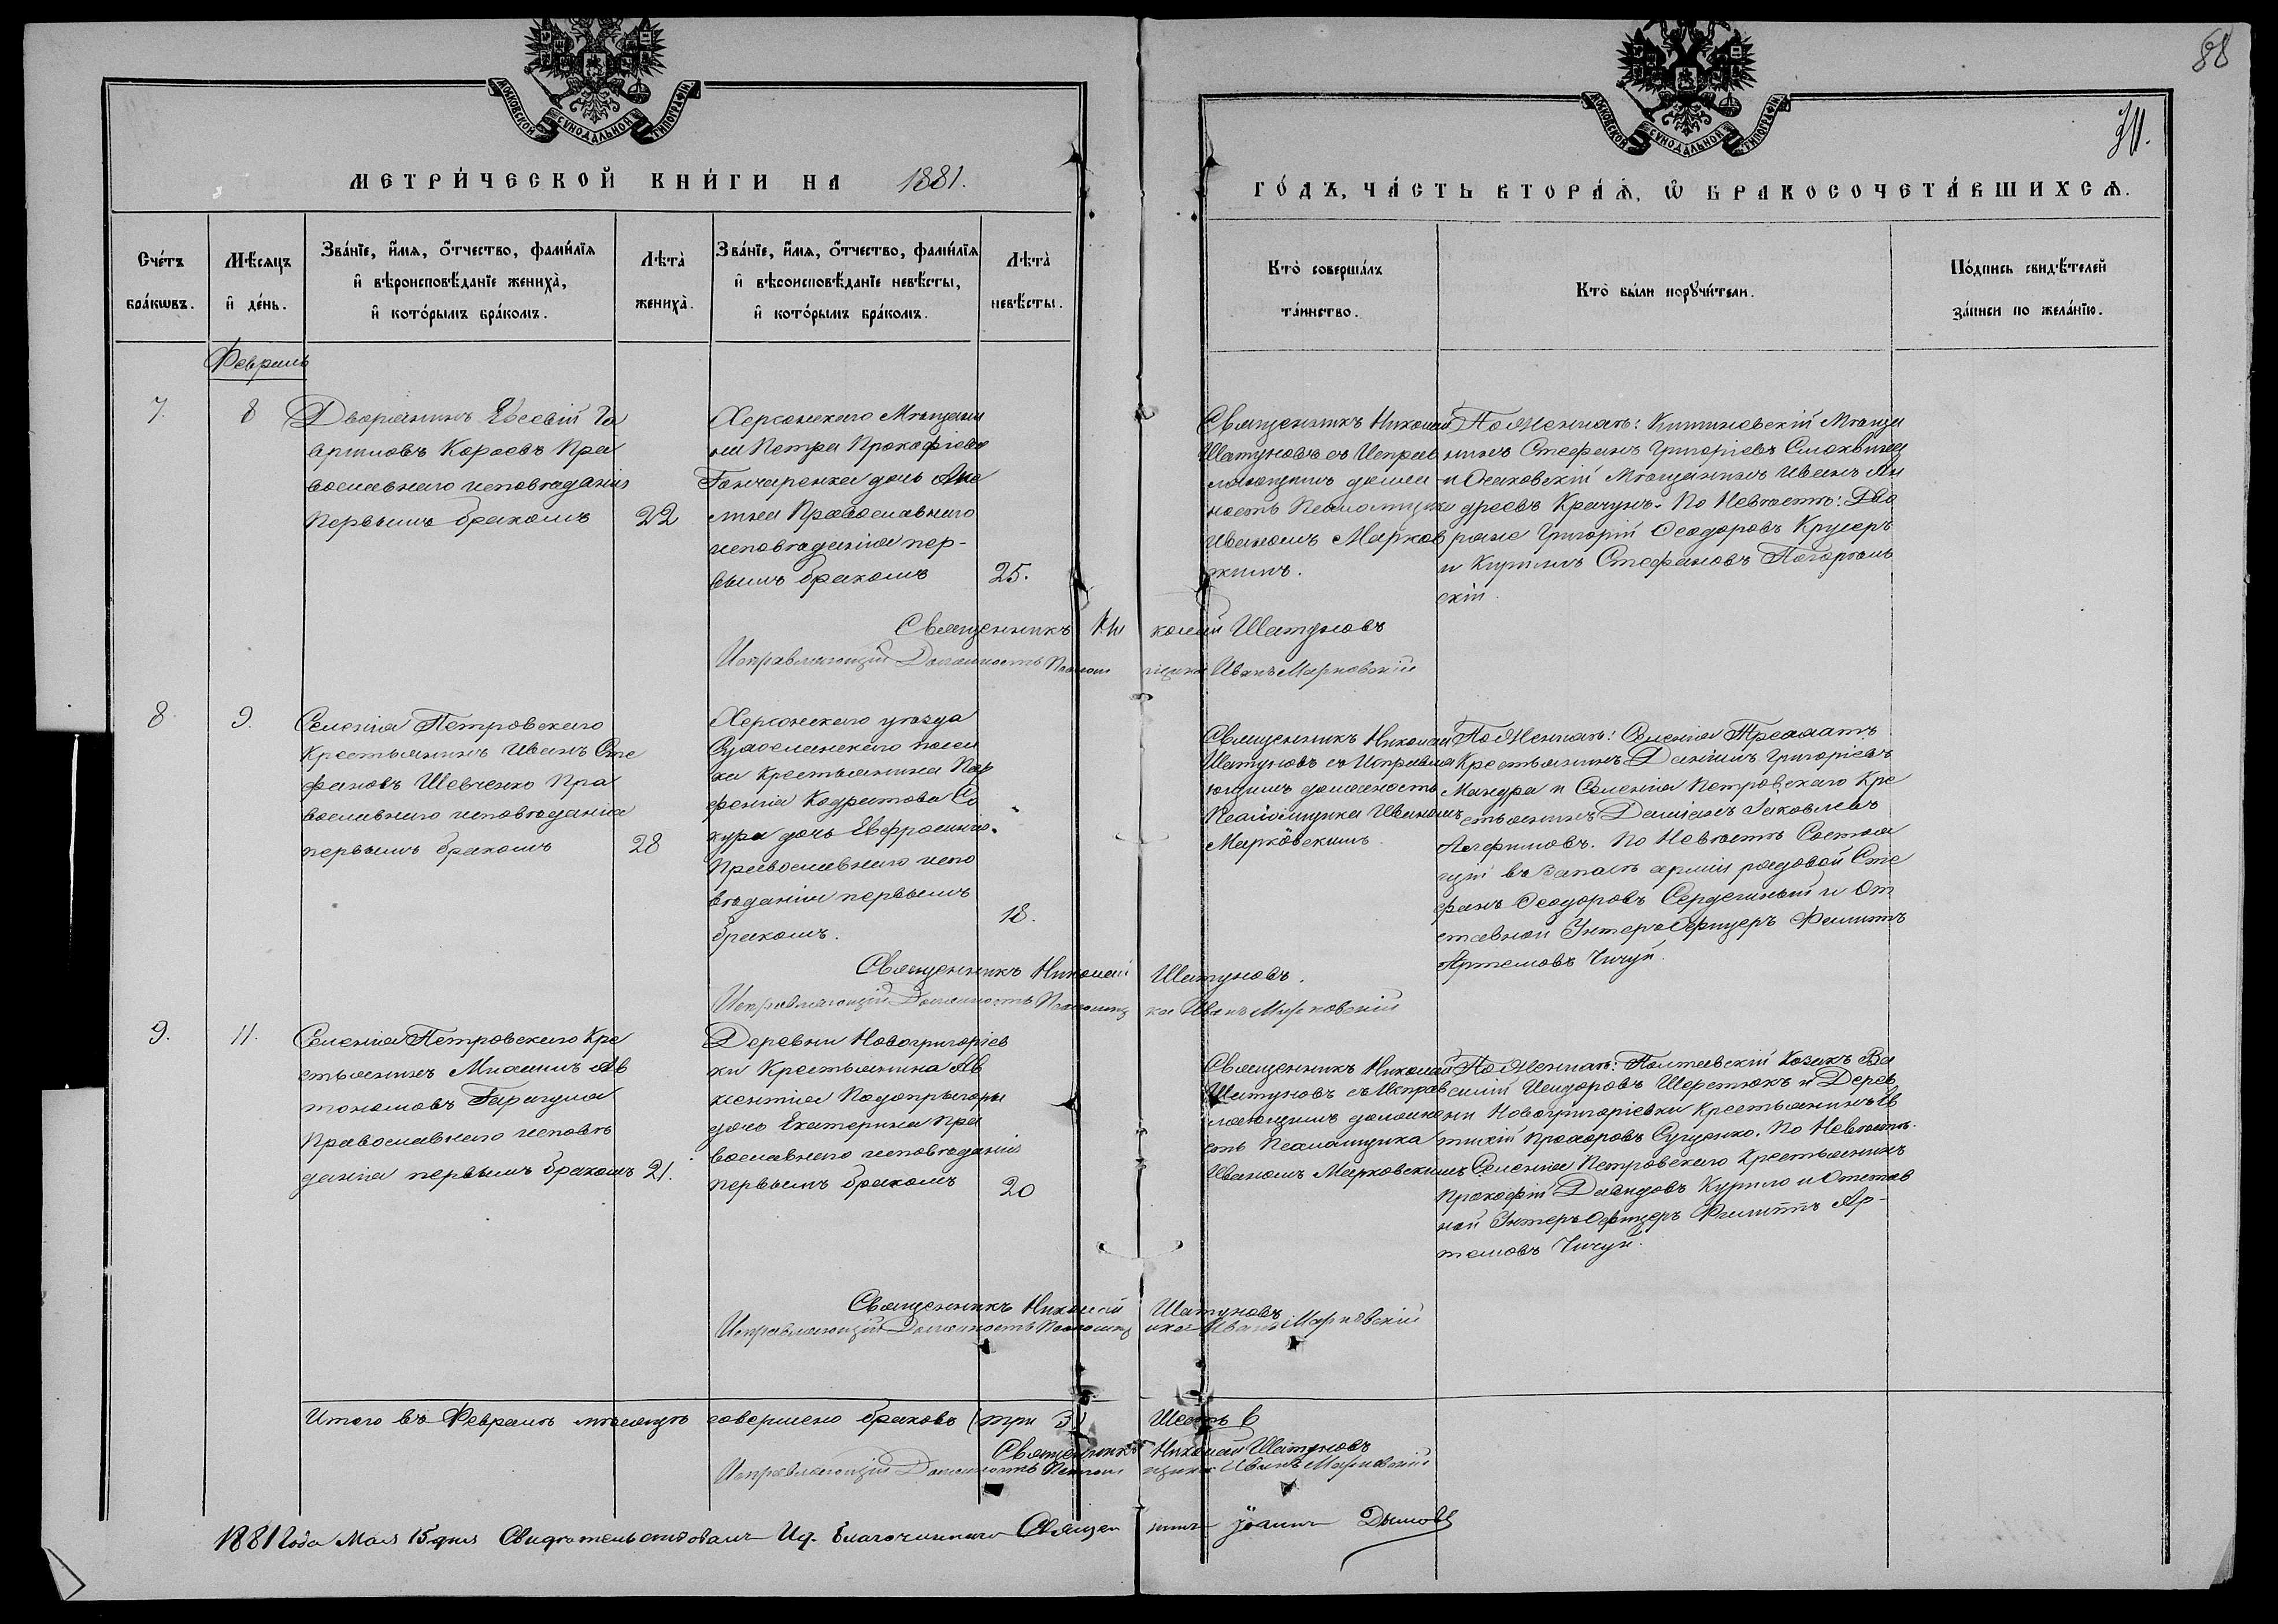 68
31.
МОСКОВСКОЙ СѴНОДАЛЬНОЙ ТИПОГРАФІИ
МОСКОВСКОЙ СѴНОДАЛЬНОЙ ТИПОГРАФІИ
МЕТРИ́ЧЕСКОЙ КНИ́ГИ НА 1881.
ГО́ДЪ, ЧА́СТЬ ВТОРА́Ѧ, Ѡ БРАКОСОЧЕТА́ВШИХСѦ.
Сче́тъ
бра́кѡвъ.
Мѣ́сяцъ
и҆ де́нь.
Зва́нїе, и҆́мя, о҆́тчество, фами́лїя
и҆ вѣроисповѣ́данїе жениха̀,
и҆ кото́рымъ бра́комъ.
Лѣта̀
жениха̀.
Зва́нїе, и҆́мя, о҆́тчество, фами́лїя
и҆ вѣроисповѣ́данїе невѣ́сты,
и҆ кото́рымъ бра́комъ.
Лѣта̀
невѣ́сты.
Кто̀ соверша́лъ
та́инство.
Кто̀ бы́ли порꙋчи́тели.
По́дпись свидѣ́телей
за́писи по жела́нїю.
Февраль
7.
8
Дворянинъ Евсевій Га
вриловъ Караевъ Пра
вославнаго исповѣданія
первымъ бракомъ
22
Херсонскаго Мѣщани
на Петра Прокофіева
Гончаренка дочь
Православнаго
исповѣданія пер-
вымъ бракомъ
25.
Священникъ Николай
Шатуновъ съ Исправ
ляющимъ долж
ность Псаломщика
Иваномъ Марков
скимъ.
По Женихѣ: Кишиневскій Мѣща
нинъ Стефанъ Григоріевъ
и Очаковскій Мѣщанинъ Иванъ Ан
дреевъ Крачунъ. По Невѣстѣ: Дво
ряне Григорій Ѳеодоровъ Крусеръ
и Кирилъ Стефановъ Погорѣль
скій.
Священникъ Николай Шатуновъ
Исправляющій Должность Псаломщика Иванъ Марковскій
8
9.
Селенія Петровскаго
Крестьянинъ Иванъ Сте
фановъ Шевченко Пра
вославнаго исповѣданія
первымъ бракомъ
28
Херсонскаго уѣзда
посел
ка Крестьянина Пар
фенія Кодратова Со
кура дочь Евфросинія.
Православнаго испо
вѣданія первымъ
бракомъ.
18.
Священникъ Николай
Шатуновъ съ Исправля
ющимъ должность
Псаломщика Иваномъ
Марковскимъ.
По Женихѣ: Селенія Трехатъ
Крестьянинъ Даніилъ Григоріевъ
Мандра и Селенія Петровскаго Кре
стьянинъ Даміанъ Іаковлевъ
По Невѣстѣ Состоя
щій въ Запасѣ арміи рядовой Сте
фанъ Ѳеодоровъ и От
ставной Унтеръ Офицеръ Филиппъ
Артемовъ Чичуй.
Священникъ Николай Шатуновъ.
Исправляющій Должность Псаломщика Иванъ Марковскій
9.
11.
Селенія Петровскаго Кре
стьянинъ Михаилъ Ав
тономовъ Гарагуля
Православнаго исповѣ
данія первымъ бракомъ
21.
Деревни Новогригоріев
ки Крестьянина Ав
ксентія Подопрыгоры
дочь Екатерина Пра
вославнаго исповѣданія
первымъ бракомъ
20
Священникъ Николай
Шатуновъ съ Исправ
ляющимъ должно
сть Псаломщика
Иваномъ Марковскимъ
По Женихѣ: Полтавскій Козакъ Ва
силій Исидоровъ Шерстюкъ и Дерев
ни Новогригоріевки Крестьянинъ Ев
тихій Прохоровъ Сущенко. По Невѣстѣ.
Селенія Петровскаго Крестьянинъ
Прокофій Давидовъ Курило и Отстав
ной Унтеръ Офицеръ Филиппъ Ар-
темовъ Чичуй.
Священникъ Николай Шатуновъ
Исправляющій Должность Псаломщика Иванъ Марковскій
Итого въ Февралѣ мѣсяцѣ совершено браковъ (три 3) Шесть 6
Священникъ Николай Шатуновъ
Исправляющій Должность Псаломщика Иванъ Марковскій
1881 года Мая 15 дня Свидѣтельствовалъ Ид. Благочиннаго Священникъ Іоаннъ Дымовъ